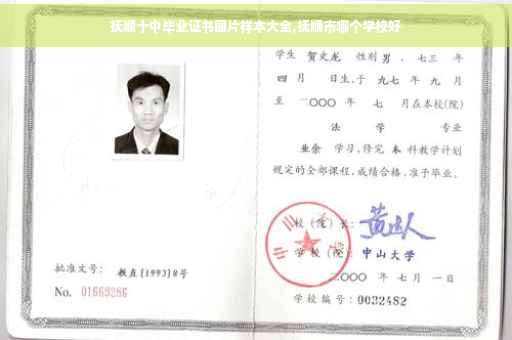 抚顺十中毕业证书图片样本大全,抚顺市哪个学校好
学生 贺文龙 性别 男 、七三 年
四 月 日生,于 九七 年 九 月
至 二〇〇〇 年 七 月在本校(院)
法 学 专业
业余 学习,修完 本 科教学计划
规定的全部课程,成绩合格,准予毕业。
校(院)长:
学校(院): 中山大学
二〇〇〇 年 七 月 一 日
学校编号:0032482
批准文号: 教直[1993]8号
No. 01669286